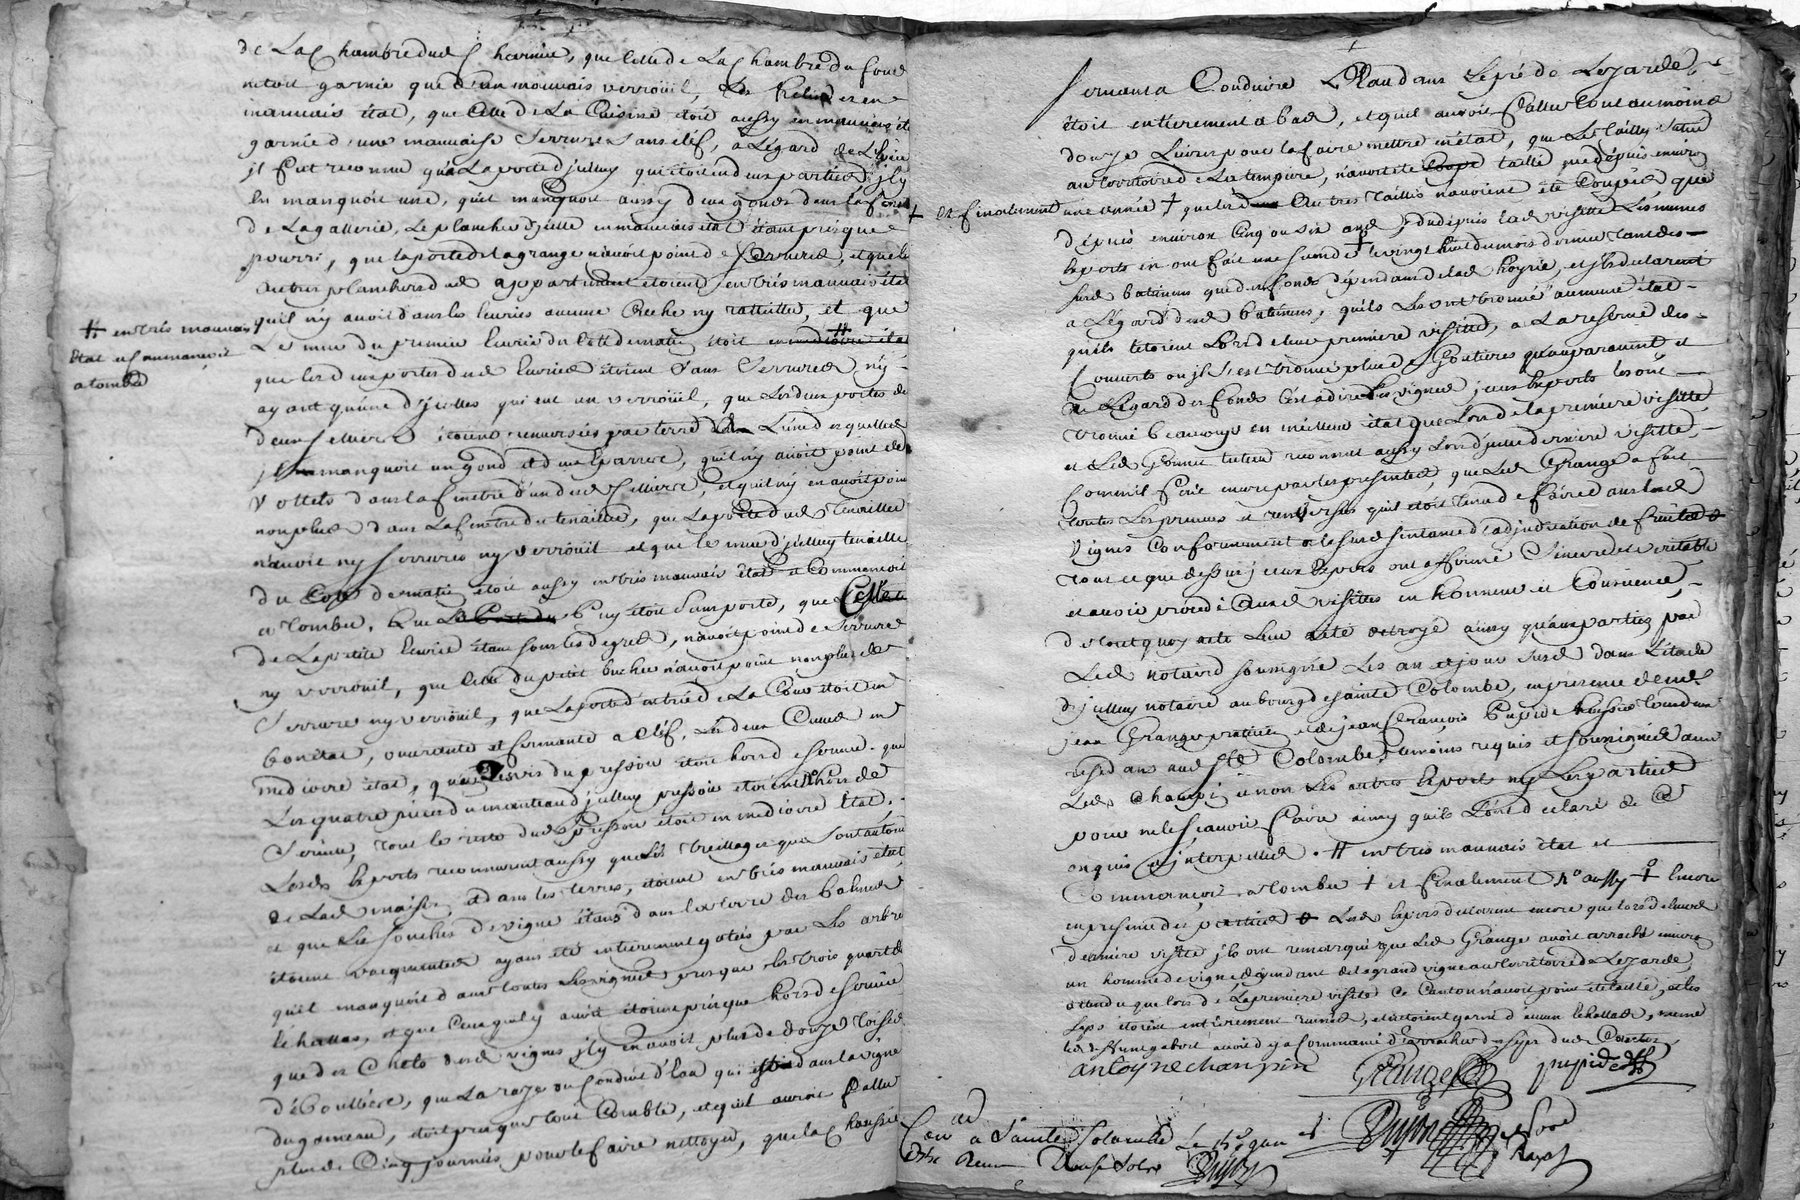 de La Chambre dud Charnier, que celle de La Chambre du fond
netoit garnie que d'un mauvais verroüil, Les en
mauvais état, que Celle de La Cuisine étoit aussy en mauvais état
garnie d'une mauvaise Serrure Sans cléf, a Légard de
jl fut reconnu qu'a La porte d'jcelluy qui étoit en deux parties jl y
En manquoit une, qu'il manquoit aussy deux gonds dans la
de La gallerie, Le plancher d'jcelle en mauvais état étant presque
pourri, que la porte de la grange n'avoit point de Serrure, et que les
autres planchers dud appartement étoient en très mauvais état
qu'il n'y avoit dans les Ecuries aucune Creche ny rattellier, et que
Le mur du premier Ecurie du Côté de matin étoit en mediocre état
# en très mauvais
état et commençoit
a tomber
que les deux portes des Ecuries étoient Sans Serrures n'y
ayant qu'une d'jcelles qui eut un verroüil, que Les deux portes des
deux Celliers étoient renversées par terre L'une desquelles
jl manquoit un gond et deux Eparres, qu'il n'y avoit point de
Vollets dans La fenêtre d'un des Celliers, et qu'il n'y en avoit point
non plus dans La fenêtre du tenailler, que La porte dud tenaillier
n'avoit ny serrures ny verroüil et que le mur d'jcelluy tenaillier
du Coté de matin étoit aussy en très mauvais état et Commençoit
a tomber, que La Porte du Puy étoit Sans porte, que Celle
de La petite Ecurie étant sous les degrés, n'avoit point de serrure
ny verroüil, que Celle du petit bucher n'avoit point non plus de
Serrure ny verroüil, que La porte d'entrée de La Cour étoit en
bon état, ouvrante et fermante a Cléf, Les deux Cuves en
mediocre état, que Le vis du pressoir étoit hors de service, que
Les quatre pieces du manteau d'jcelluy pressoir étoient hors de
Service, tout le reste dud pressoir étoit en mediocre état,
Lesds Experts reconnurent aussy que Les treillages qui sont autour
de Lad maison et dans les terres, étoient en très mauvais état
et que Les souches de vigne étans dans la terre des balmes
étoient ayant été entierement gatées par Les arbres
qu'il manquoit dans toutes Les vignes presque les trois quarts de
lechallas, et que Ceux qu'il y avoit étoient presque hors de service
que des Chets desd vignes jl y en avoit plus de douze toises
d'éboullées, que La raze ou Conduit d'Eau qui est dans la vigne
du gameau, étoit presque tout Comblé, et qu'il auroit fallu
plus de Cinq journées pour le faire nettoyer, que la chaussée
Servant a Conduire L'Eau dans Le pré de Lezarde
étoit entierement a bas, et qu'il auroit fallu tout au moins
douze Livres pour la faire mettre en état, que Le taillis situé
au territoire de La tempure, n'avoit été coupé taillé que depuis environ
+ et finalement une année + que les Autres taillis n'avoient été Coupés que
depuis environ Cinq ou six ans, et du depuis lad visitte Lesmemes
Experts en ont fait une seconde Le vingt huit du mois dernier tant des
susd batimens que des fonds dépendans de lad Hoyrie, et jls declarent
a L'égard desd batimens, qu'ils Les ont trouvé au meme état
qu'ils étoient Lors de leur premiere visitte, a La reserve des
Couverts ou jl s'est trouvé plus de Goutieres qu'auparavant et
a L'égard des fonds C'est a dire Les vignes jceux Experts les ont
trouvé beaucoup en meilleur état que Lors de la premiere visitte
et Led Gonnet tuteur reconnut aussy Lors d'jcelle derniere visitte,
Comm'il fait encore par les presentes, que Led Grange a fait
toutes Les preuves et renverses qu'il étoit tenu de faire dans lesd
Vignes Conformement a la susd sentance d'adjudication de fruits &
tout ce que dessus jceux Experts ont affirmé Sincere et veritable
et avoir procédé Auxd visittes en honneur et Conscience,
de tout quoy acte Leur a été octroyé ainsy qu'aux parties par
Led notaire soussigné Les an et jour susd dans L'étude
d'jcelluy notaire au bourg de sainte Colombe, en presence de me
jean Grange praticien et de jean François Pupide huissier tous deux
residans aud Ste Colombe, temoins requis et soussignés avec
Led Champin et non Les autres Expert ny Lesd parties
pour ne le sçavoir faire ainsy qu'ils L'ont declaré de Ce
enquis et jnterpellés. # en très mauvais état et
Commençoit a tomber + et finalement + Encore
en presence des parties Lesd Experts declarent encore que lors d'lad
derniere visitte jls ont remarqué que Led Grange avoit arraché environ
un homme de vigne dépendant de la grand vigne au territoire de Lezarde,
attendu que lors de La premiere visite Ce Canton n'avoit point été taillé, et les
seps étoient entierement ruinés, et n'étoient garni d'aucun lechallas, meme
avoit deja Commancé d'arracher des seps dud Canton
antoyne champin Grange pupide
Dujon
Con a Sainte Colombe Le
Receu Douze sols
Dujon